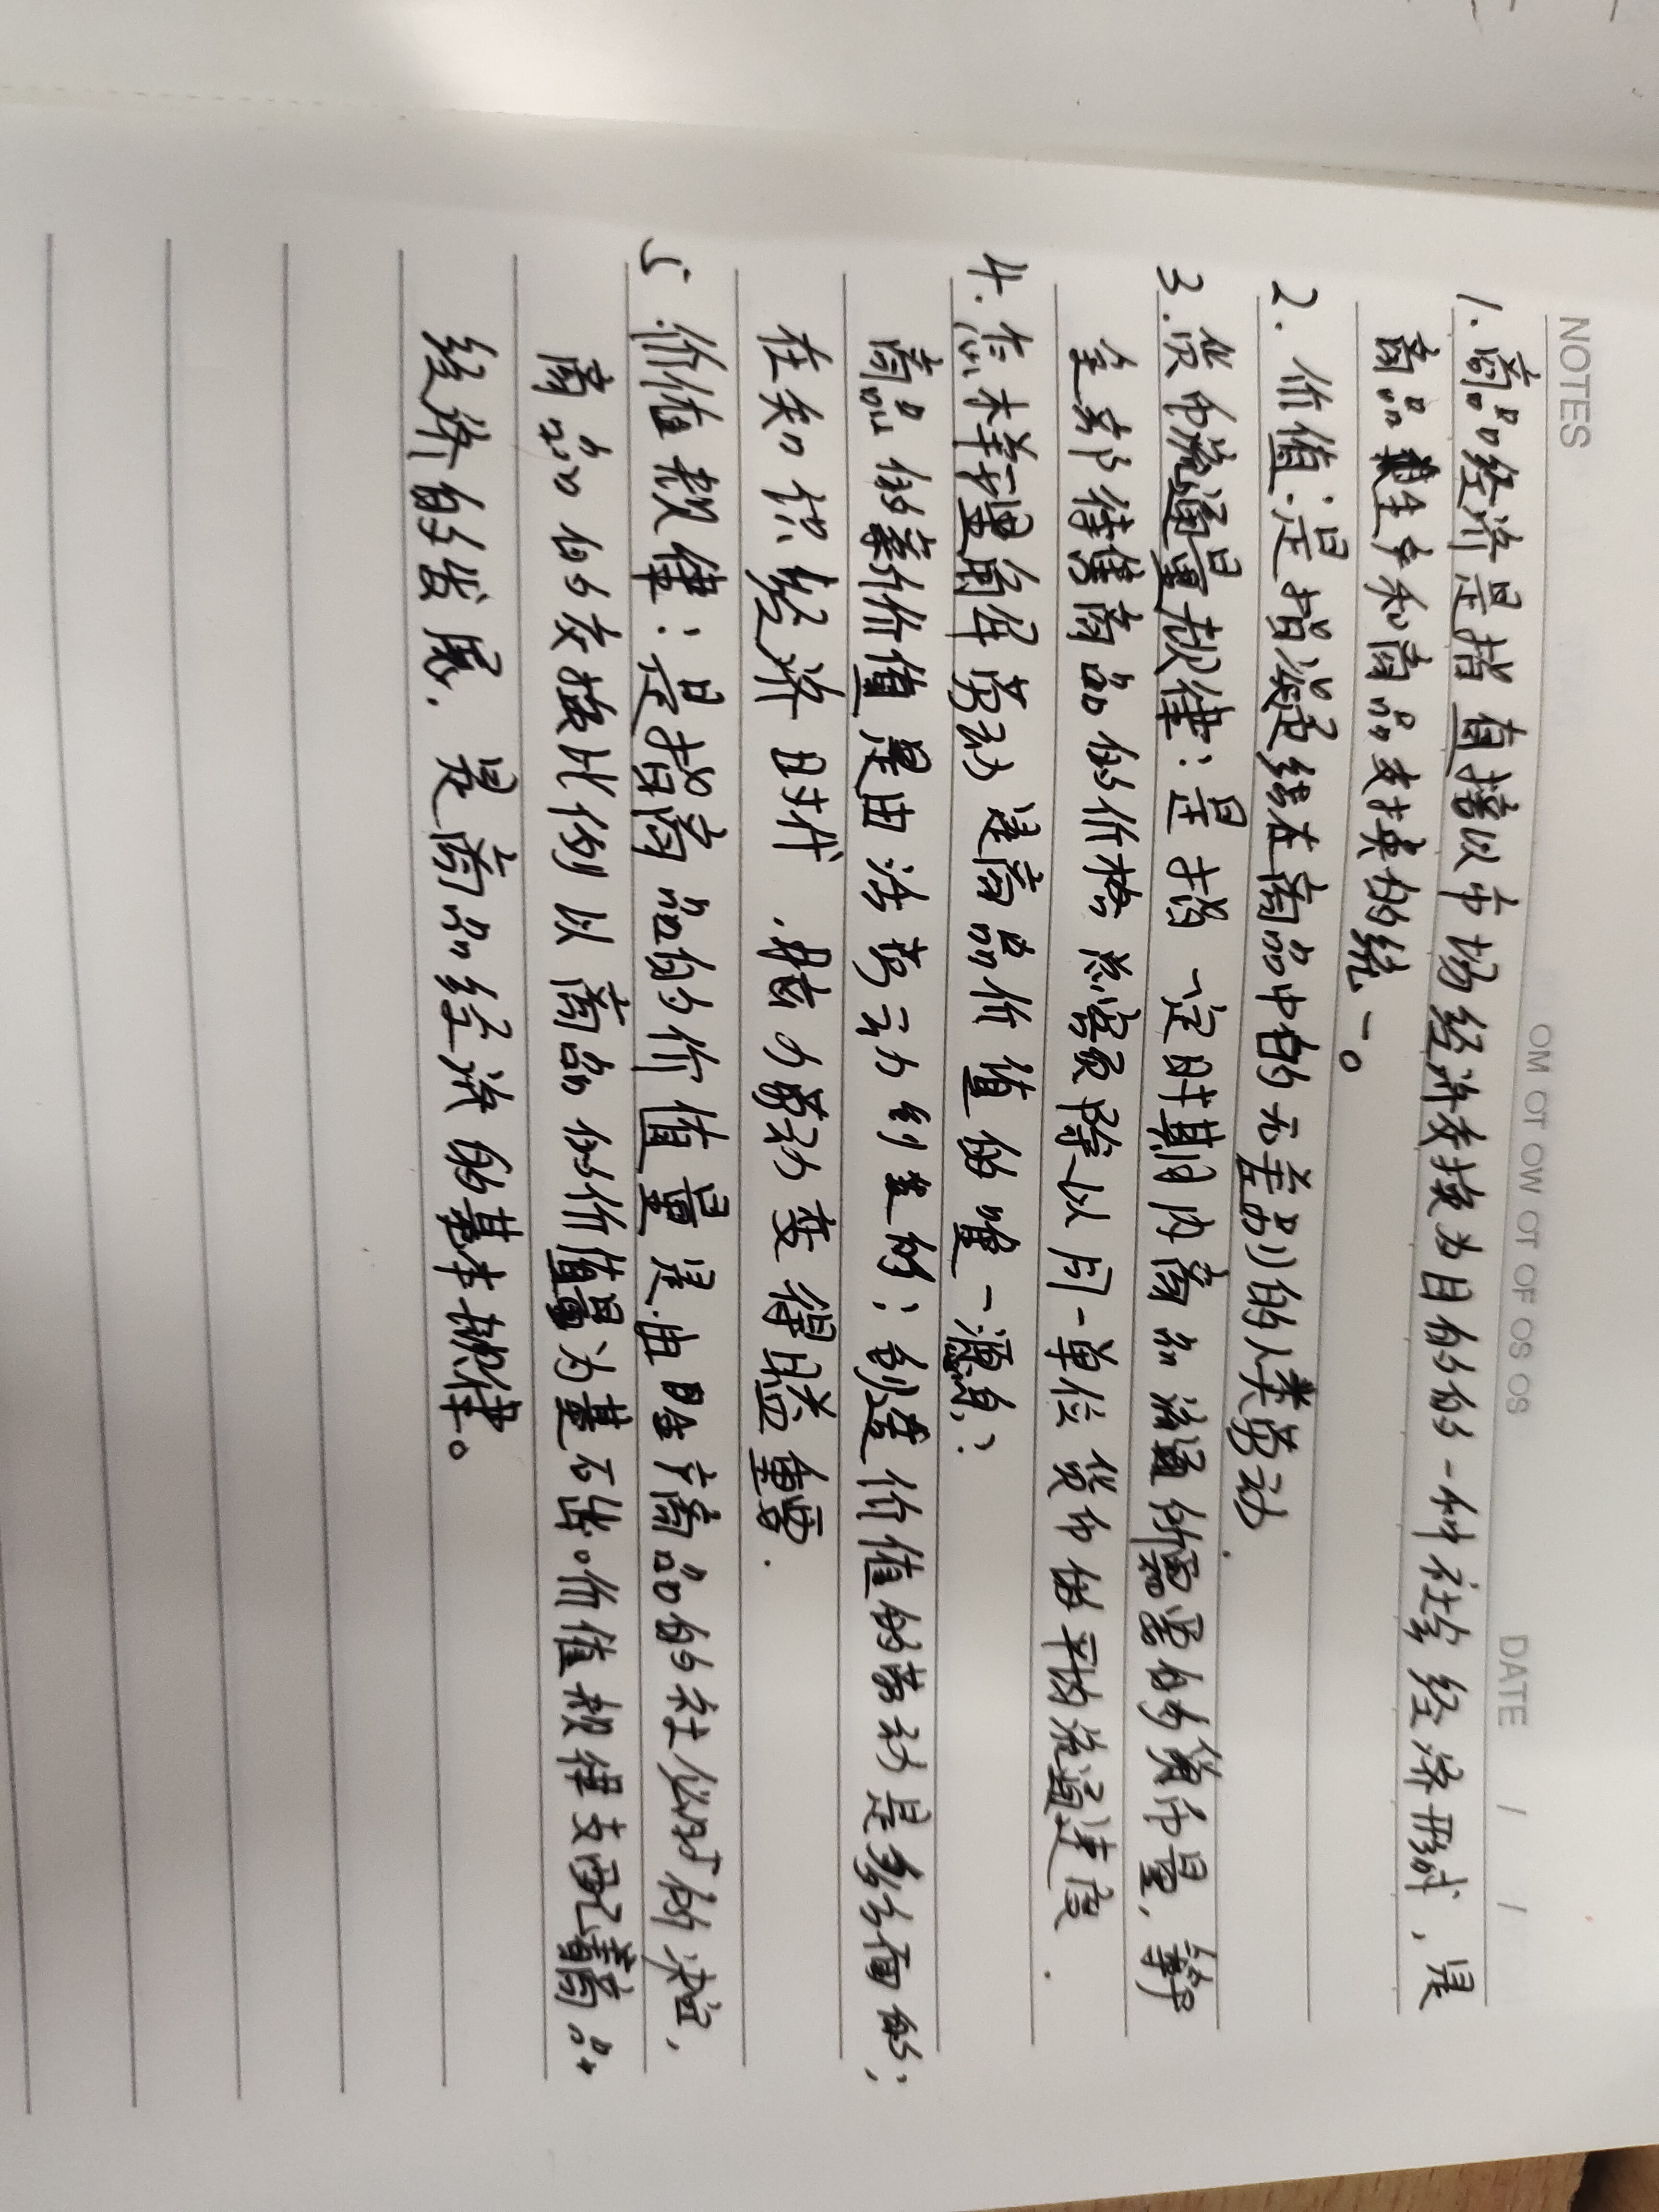 NOTES
MO TO WO TO FO SO SO
DATE / /
1. 商品经济是指直接以市场经济交换为目的的一种社会经济形式，是
商品生产和商品交换的统一。
2. 价值：是指凝结在商品中的无差别的人类劳动.
3. 货币流通量规律：是指一定时期内商品流通所需要的货币量，等于
全部待售商品的价格总额除以同一单位货币的平均流通速度.
4. 抽象劳动是商品价值的唯一源泉：
商品的价值是由活劳动创造的；创造价值的劳动是多方面的；
在知识经济时代.脑力劳动变得日益重要.
5. 价值规律：是指商品的价值量是由生产商品的社必时所决定，
商品的交换比例以商品的价值量为基础。价值规律支配着商品
经济的发展. 是商品经济的基本规律。